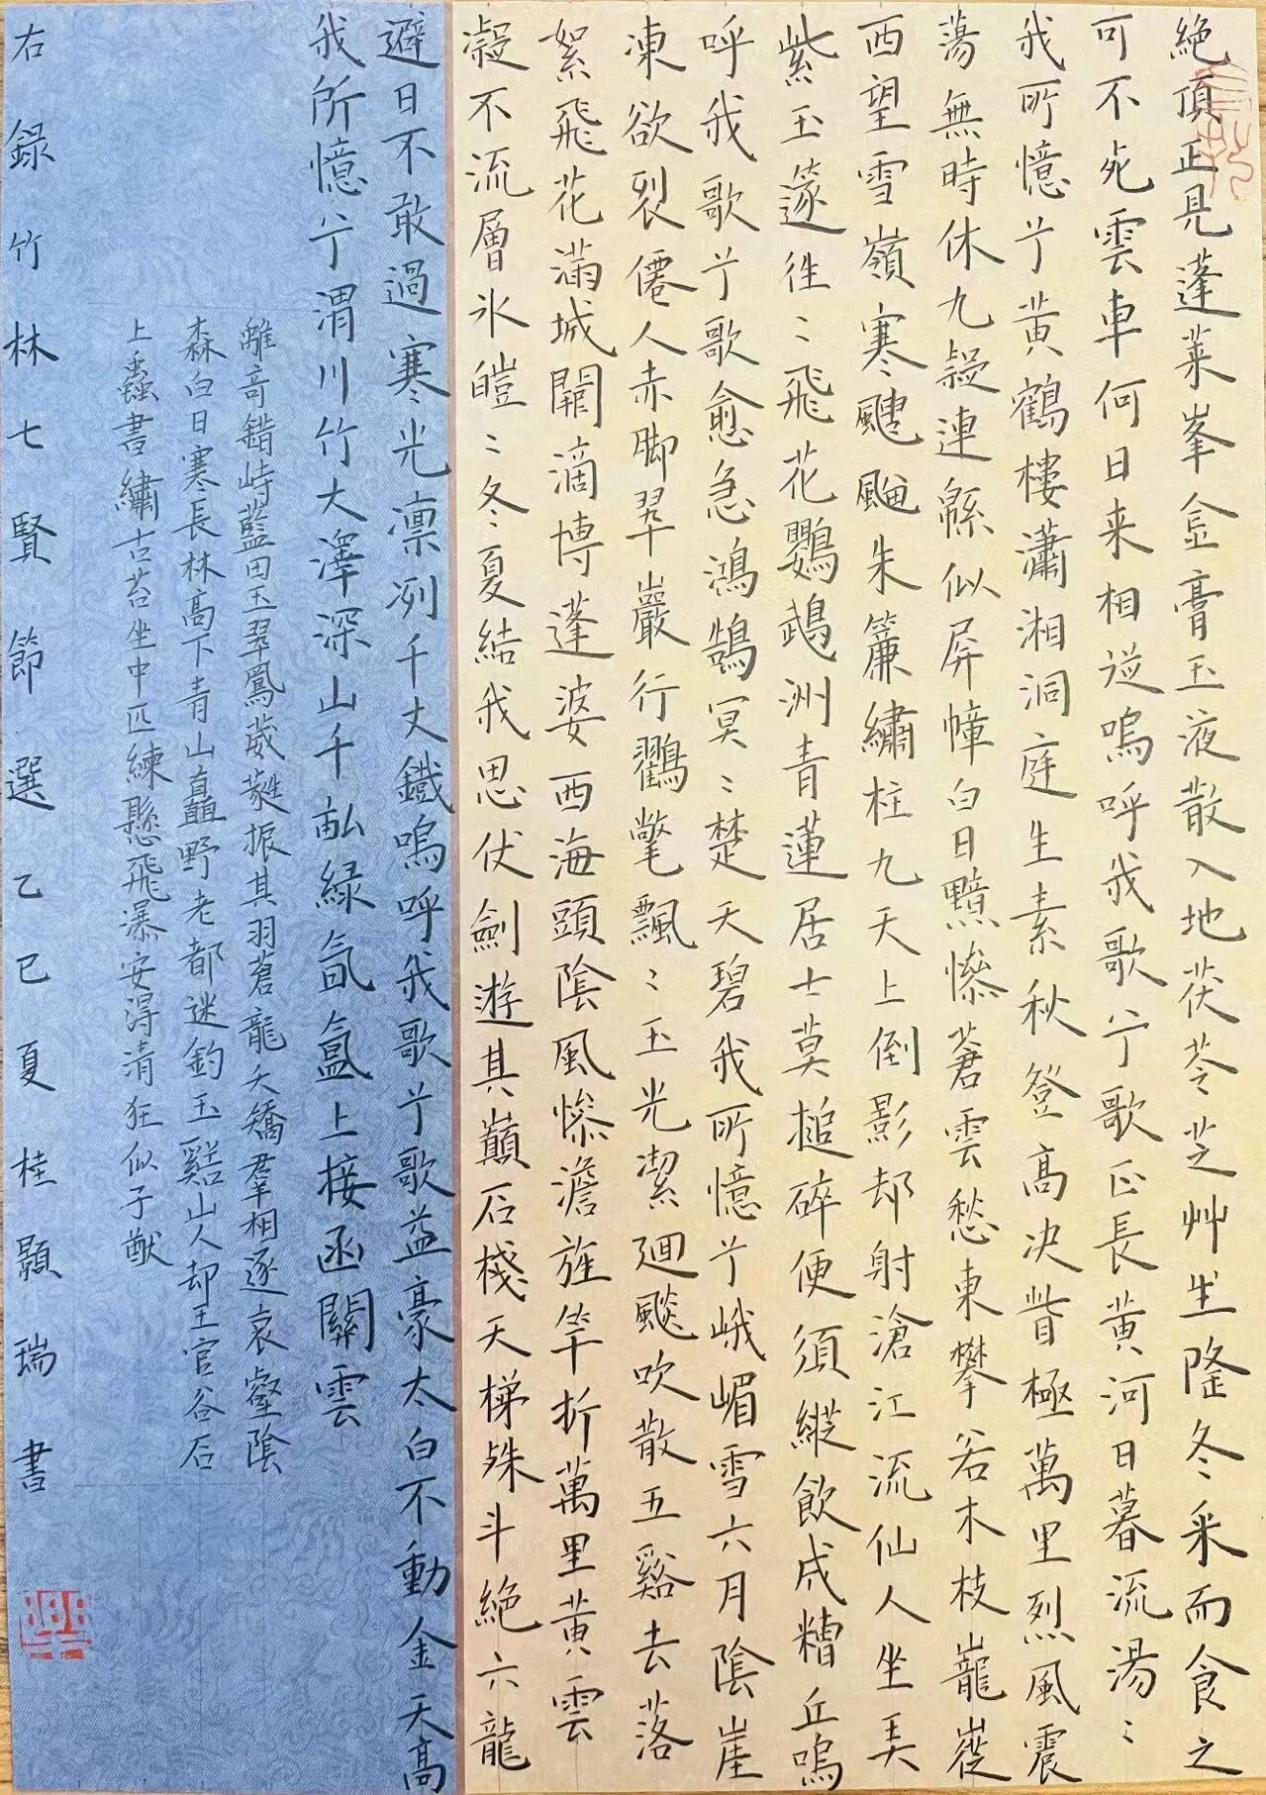 絶頂正見蓬萊峯金膏玉液散入地茯苓芝艸生隆冬采而食之
可不死雲車何日来相從嗚呼我歌兮歌正長黃河日暮流湯〻
我所憶兮黃鶴樓瀟湘洞庭生素秋登高決眥極萬里烈風震
蕩無時休九疑連緜似屏幛白日黯惨蒼雲愁東攀若木枝巃嵸
西望雪嶺寒颼飀朱簾繡柱九天上倒影却射滄江流仙人坐弄
紫玉篴往〻飛花鸚鵡洲青蓮居士莫搥碎便須縱飲成糟丘嗚
呼我歌兮歌愈急鴻鵠冥〻楚天碧我所憶兮峨嵋雪六月陰崖
凍欲裂僊人赤脚翠巖行鸐氅飄〻玉光潔廻飈吹散五谿去落
絮飛花滿城闕滴博蓬婆西海頭陰風惨澹旌竿折萬里黃雲
凝不流層氷皚〻冬夏結我思伏劍遊其巔石棧天梯殊斗絕六龍
避日不敢過寒光凛冽千丈鐵嗚呼我歌兮歌益豪太白不動金天高
我所憶兮渭川竹大澤深山千畝緑氤氳上接函關雲
離奇錯峙藍田玉翠鳳葳蕤振其羽蒼龍夭矯羣相逐哀壑陰
森白日寒長林高下青山矗野老都迷釣玉谿山人却王官谷石
上蟲書繡古苔坐中匹練懸飛瀑安得清狂似子猷
右録竹林七賢節選乙巳夏桂顯瑞書